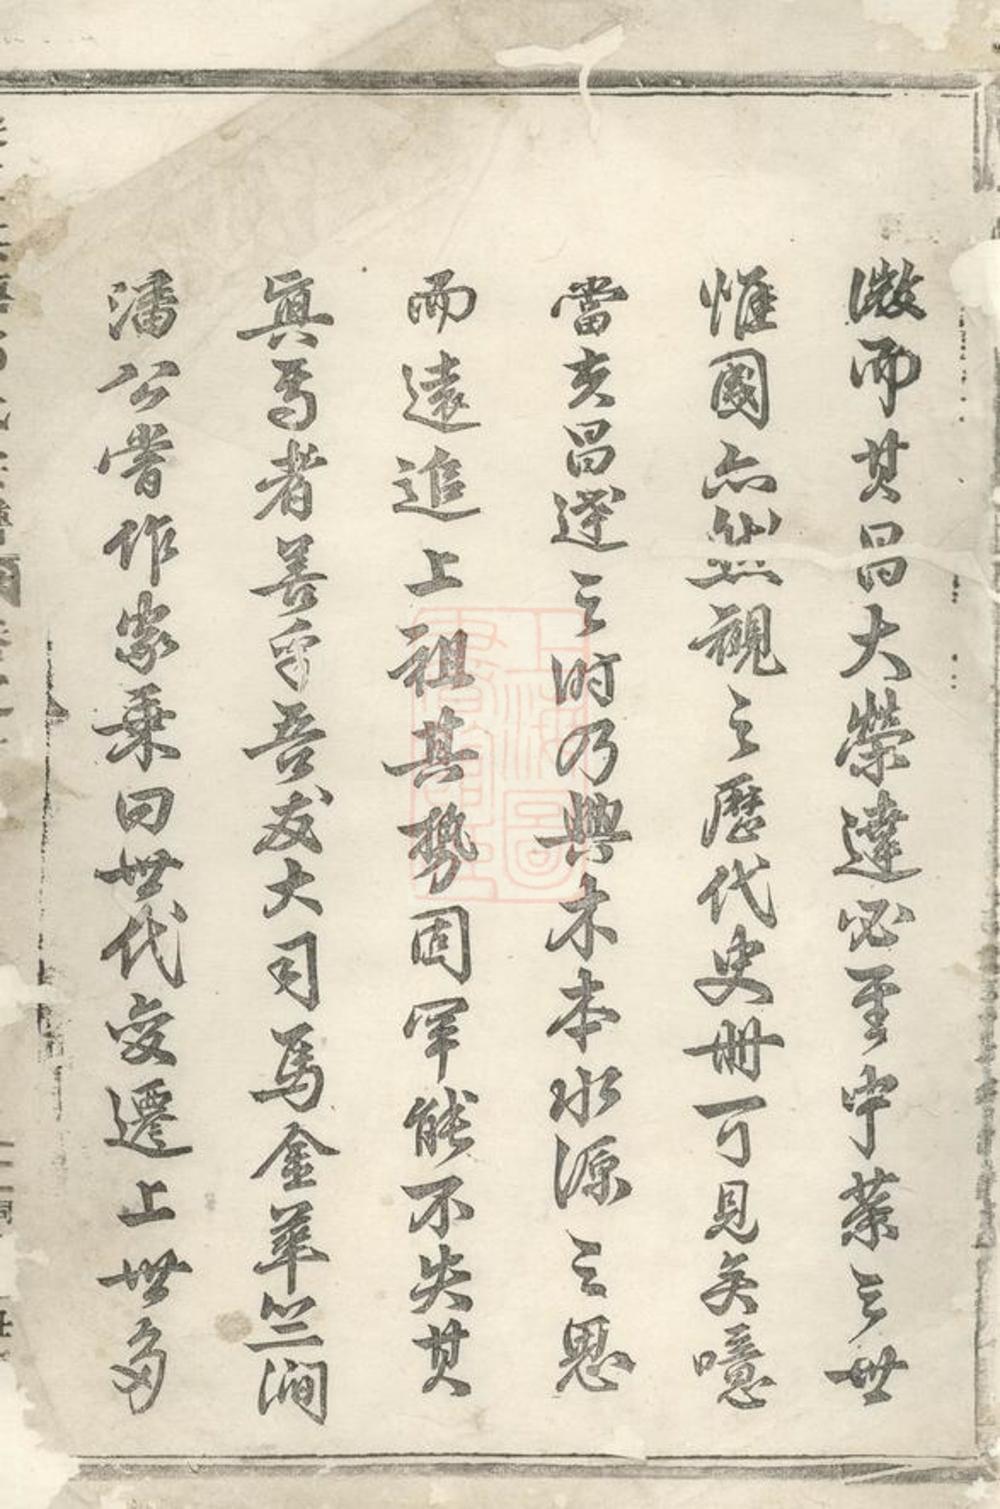 微而其昌大榮達必至中葉之世
惟國亦然視之歷代史冊可見矣噫
當亥昌運之時乃興木本水源之思
而遠追上祖其勢固罕能不失其
真焉者善乎吾友大司馬金華竺澗
潘公嘗作家乘曰世代变遷上世多
上海圖